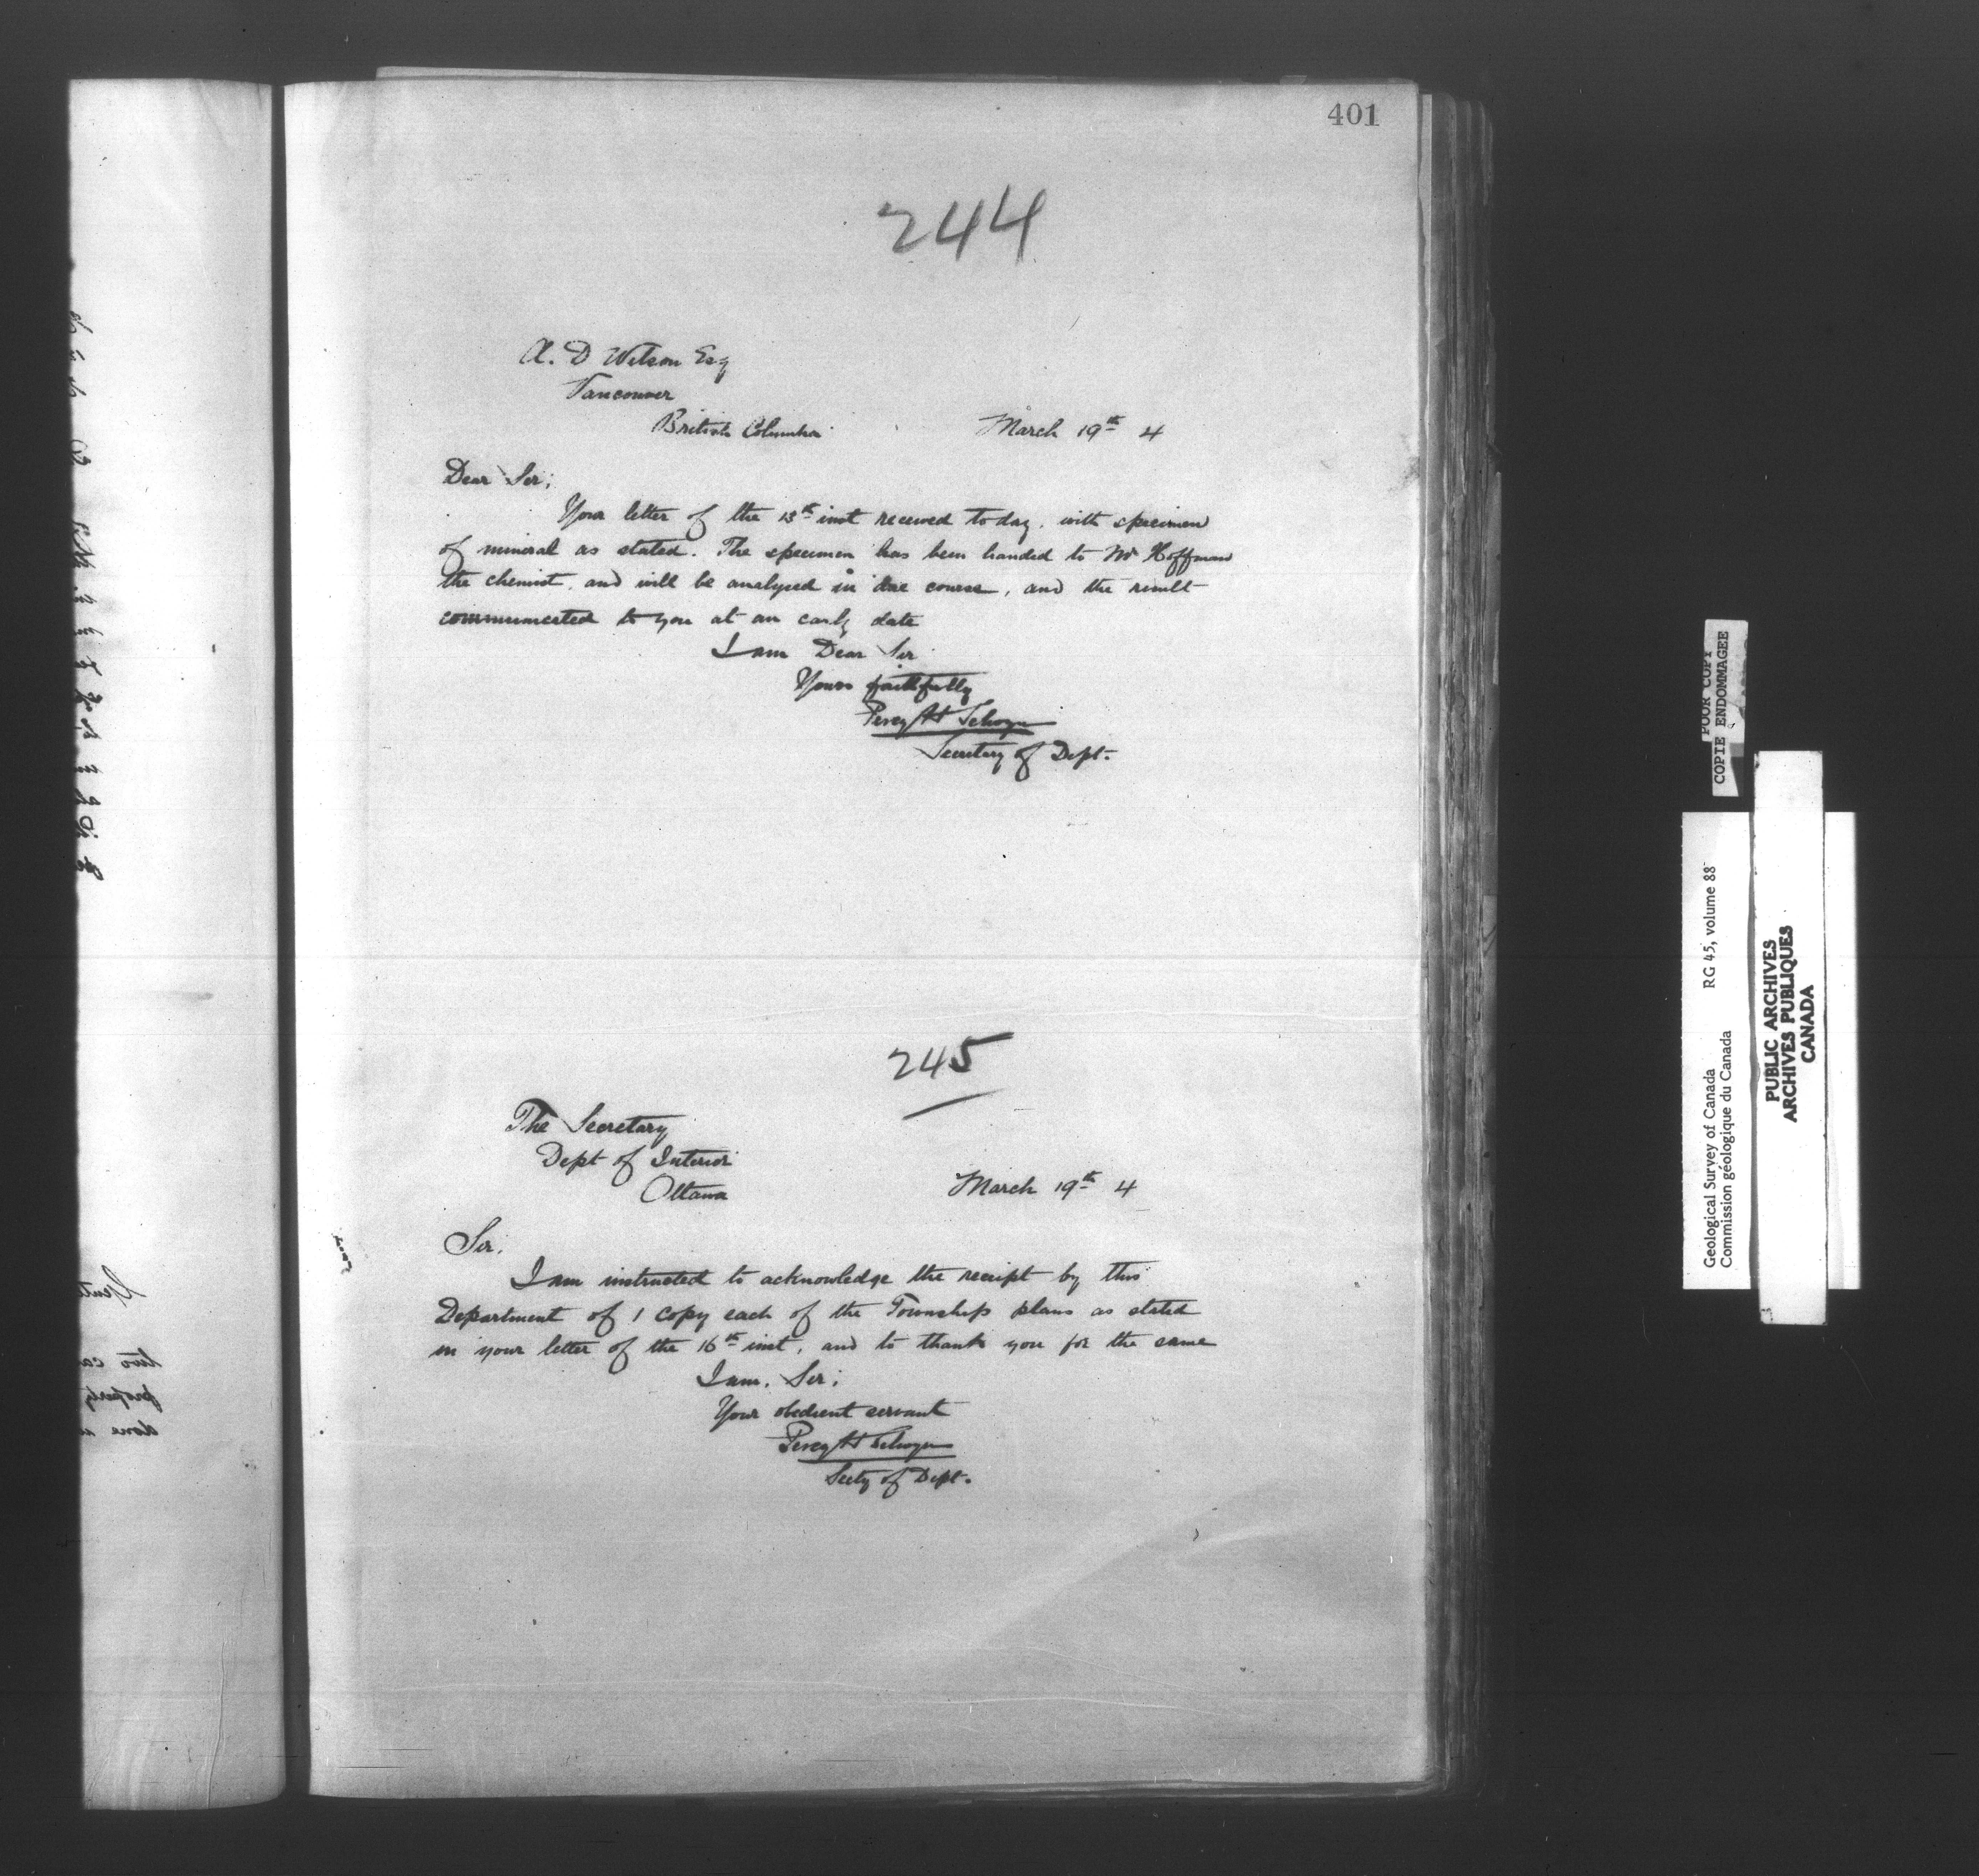 401
244
A. D Wilson Esq
Vancouver
British Columbia
March 19th 4
Dear Sir;
Your letter of the 13th inst received today, with specimen
of mineral as stated. The specimen has been handed to Mr Hoffman
the chemist, and will be analysed in due course, and the result
communicated to you at an early date
I am Dear Sir
Yours faithfully
Percy H Selwyn
Secretary of Dept.
245
The Secretary
Dept of Interior
Ottawa
March 19th 4
Sir,
I am instructed to acknowledge the receipt by this
Department of 1 copy each of the Township plans as stated
in your letter of the 16th inst, and to thank you for the same
I am, Sir;
Your obedient servant
Percy H Selwyn
Secty of Dept.
POOR COPY
COPIE ENDOMMAGEE
Geological Survey of Canada RG 45, volume 88
Commission géologique du Canada
PUBLIC ARCHIVES
ARCHIVES PUBLIQUES
CANADA
two ca
property
done